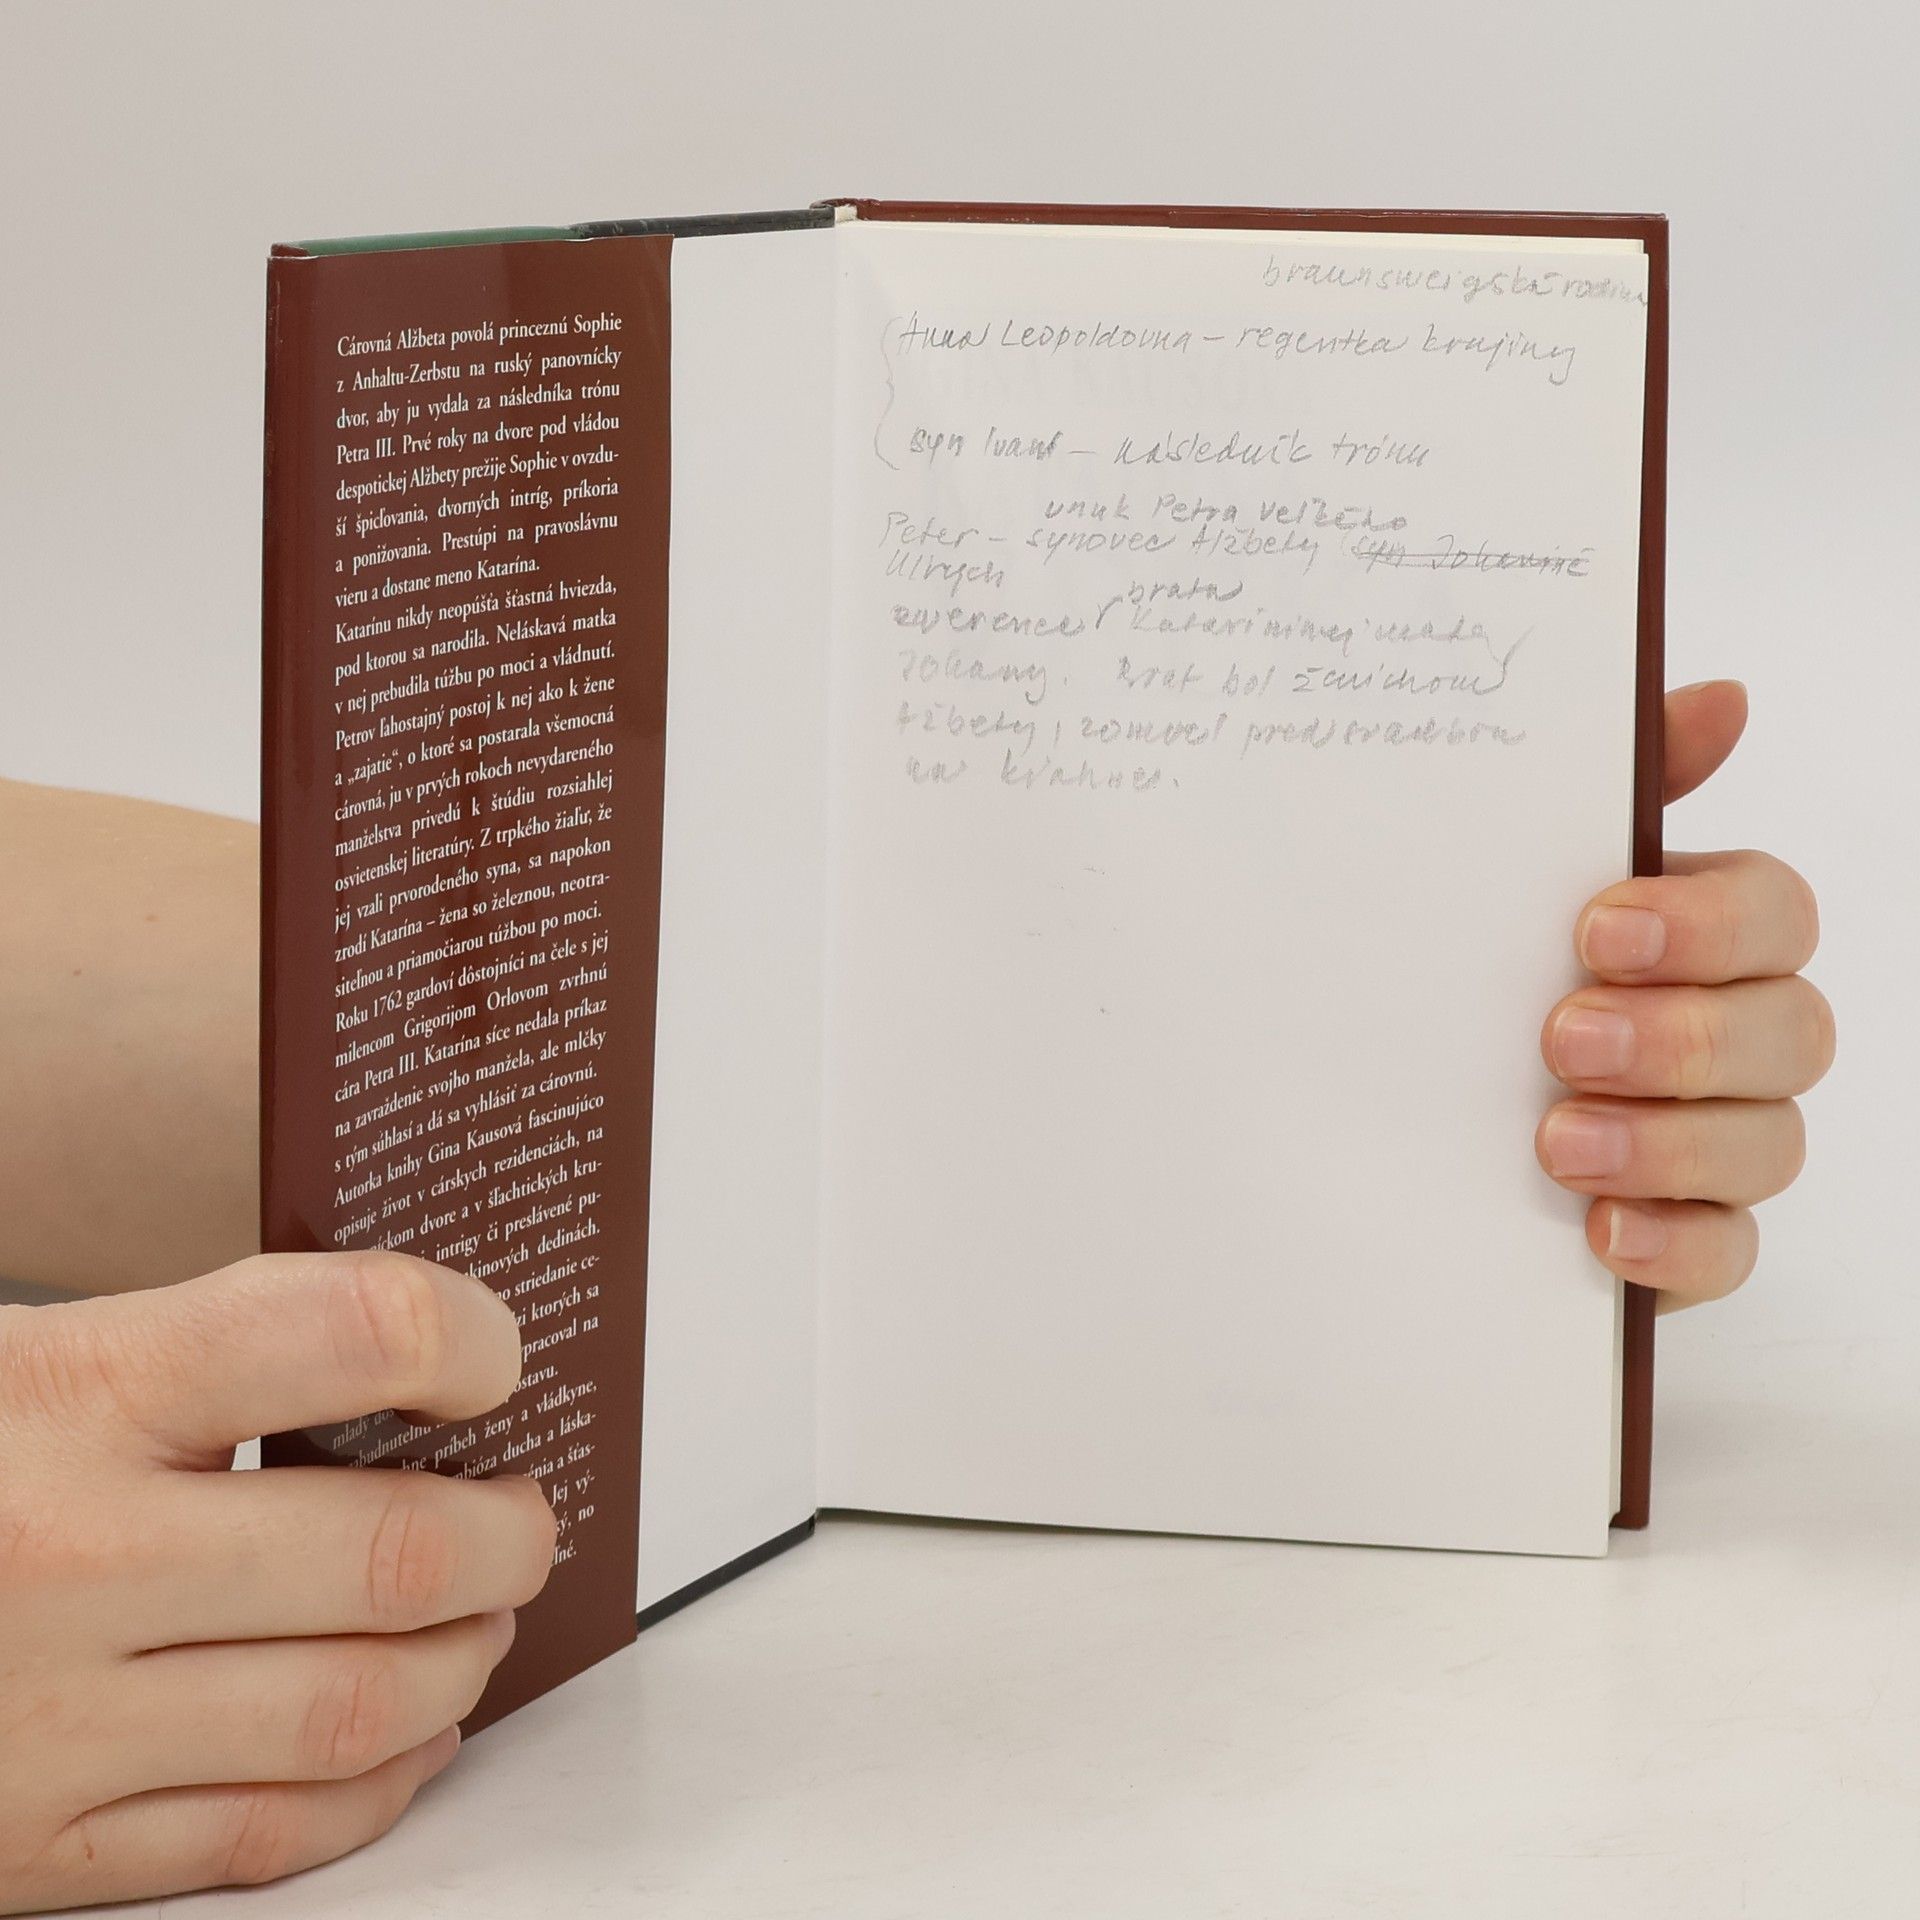 Cárovná Alžbeta povolá princeznú Sophie
z Anhaltu-Zerbstu na ruský panovnícky
dvor, aby ju vydala za následníka trónu
Petra III. Prvé roky na dvore pod vládou
despotickej Alžbety prežije Sophie v ovzdu-
ší špicľovania, dvorných intríg, príkoria
a ponižovania. Prestúpi na pravoslávnu
vieru a dostane meno Katarína.
Katarínu nikdy neopúšťa šťastná hviezda,
pod ktorou sa narodila. Neláskavá matka
v nej prebudila túžbu po moci a vládnutí.
Petrov ľahostajný postoj k nej ako k žene
a „zajatie“, o ktoré sa postarala všemocná
cárovná, ju v prvých rokoch nevydareného
manželstva privedú k štúdiu rozsiahlej
osvietenskej literatúry. Z trpkého žiaľu, že
jej vzali prvorodeného syna, sa napokon
zrodí Katarína – žena so železnou, neotra-
siteľnou a priamočiarou túžbou po moci.
Roku 1762 gardoví dôstojníci na čele s jej
milencom Grigorijom Orlovom zvrhnú
cára Petra III. Katarína síce nedala príkaz
na zavraždenie svojho manžela, ale mlčky
s tým súhlasí a dá sa vyhlásiť za cárovnú.
Autorka knihy Gina Kausová fascinujúco
opisuje život v cárskych rezidenciách, na
dvore a v šľachtických kru-
intrigy či preslávené pu-
dedinách.
striedanie ce-
ktorých sa
na
mladý
príbeh ženy a vládkyne,
ducha a láska-
a šťas-
Jej vý-
no
braunsweigská rodina
Anna Leopoldovna – regentka krajiny
syn Ivan – následník trónu
vnuk Petra Veľkého
Peter – synovec Alžbety (syn Johaniné
Ulrych
brata
zverenec Kataríninej
Johany. Brat bol ženíchom
Alžbety, zomrel pred svadbou
na kiahne.